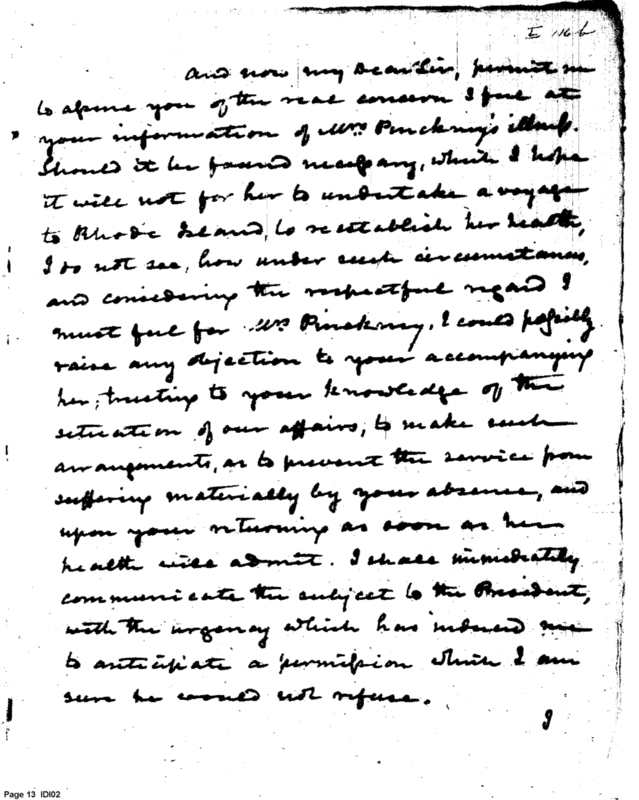 E 116 b
And now my Dear Sir, permit me
to assure you of the real concern I feel at
your information of Mrs Pinckney's illness.
Should it be found necessary, which I hope
it will not for her to undertake a voyage
to Rhode Island, to reestablish her health,
I do not see, how under such circumstances,
and considering the respectful regard I
must feel for Mrs Pinckney, I could possibly
raise any objection to your accompanying
her, trusting to your knowledge of the
situation of our affairs, to make such
arrangements, as to prevent the service from
suffering materially by your absence, and
upon your returning as soon as her
health will admit. I shall immediately
communicate the subject to the President,
with the urgency which has induced me
to anticipate a permission which I am
sure he would not refuse.
I
Page 13 IDI02